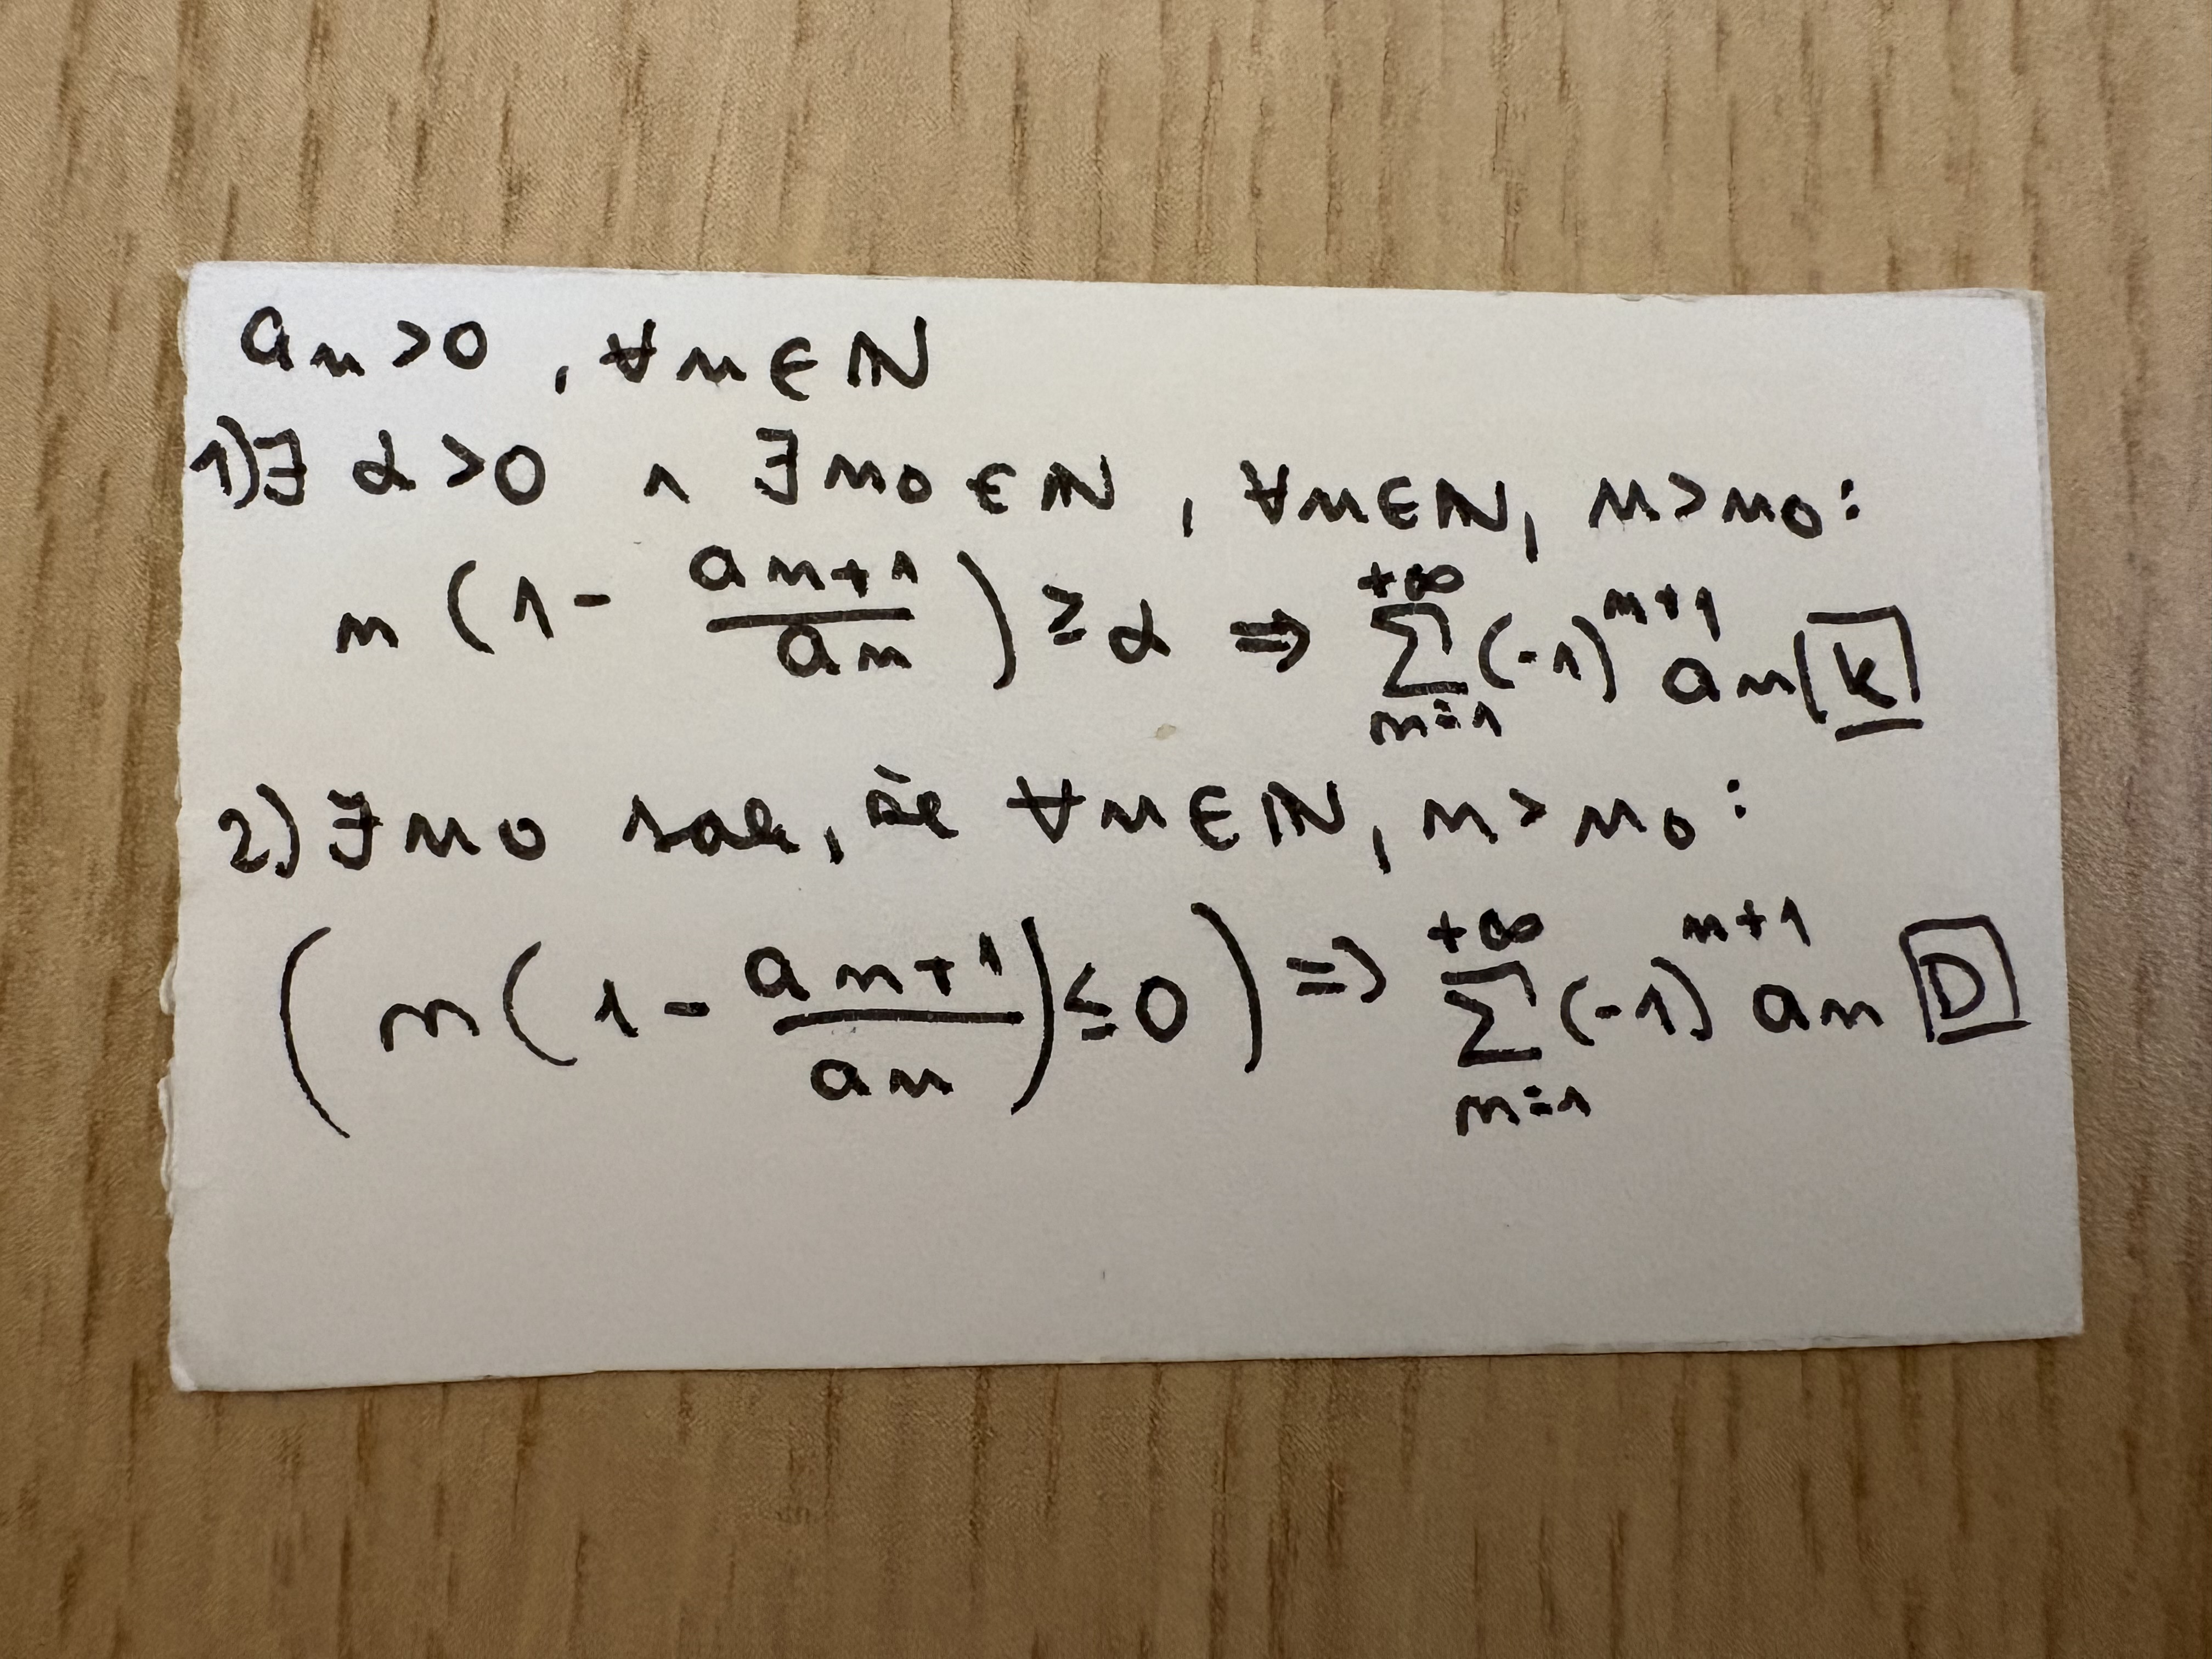 aₙ>0 , ∀n∈ℕ
1)∃ α>0 ∧ ∃n₀∈ℕ , ∀n∈ℕ, n>n₀:
n(1- aₙ₊₁/aₙ) ≥ α ⇒ +∞∑n=1 (-1)ⁿ⁺¹ aₙ K
2)∃n₀ tak, že ∀n∈ℕ, n>n₀:
(n(1- aₙ₊₁/aₙ)≤0) ⇒ +∞∑n=1 (-1)ⁿ⁺¹ aₙ D